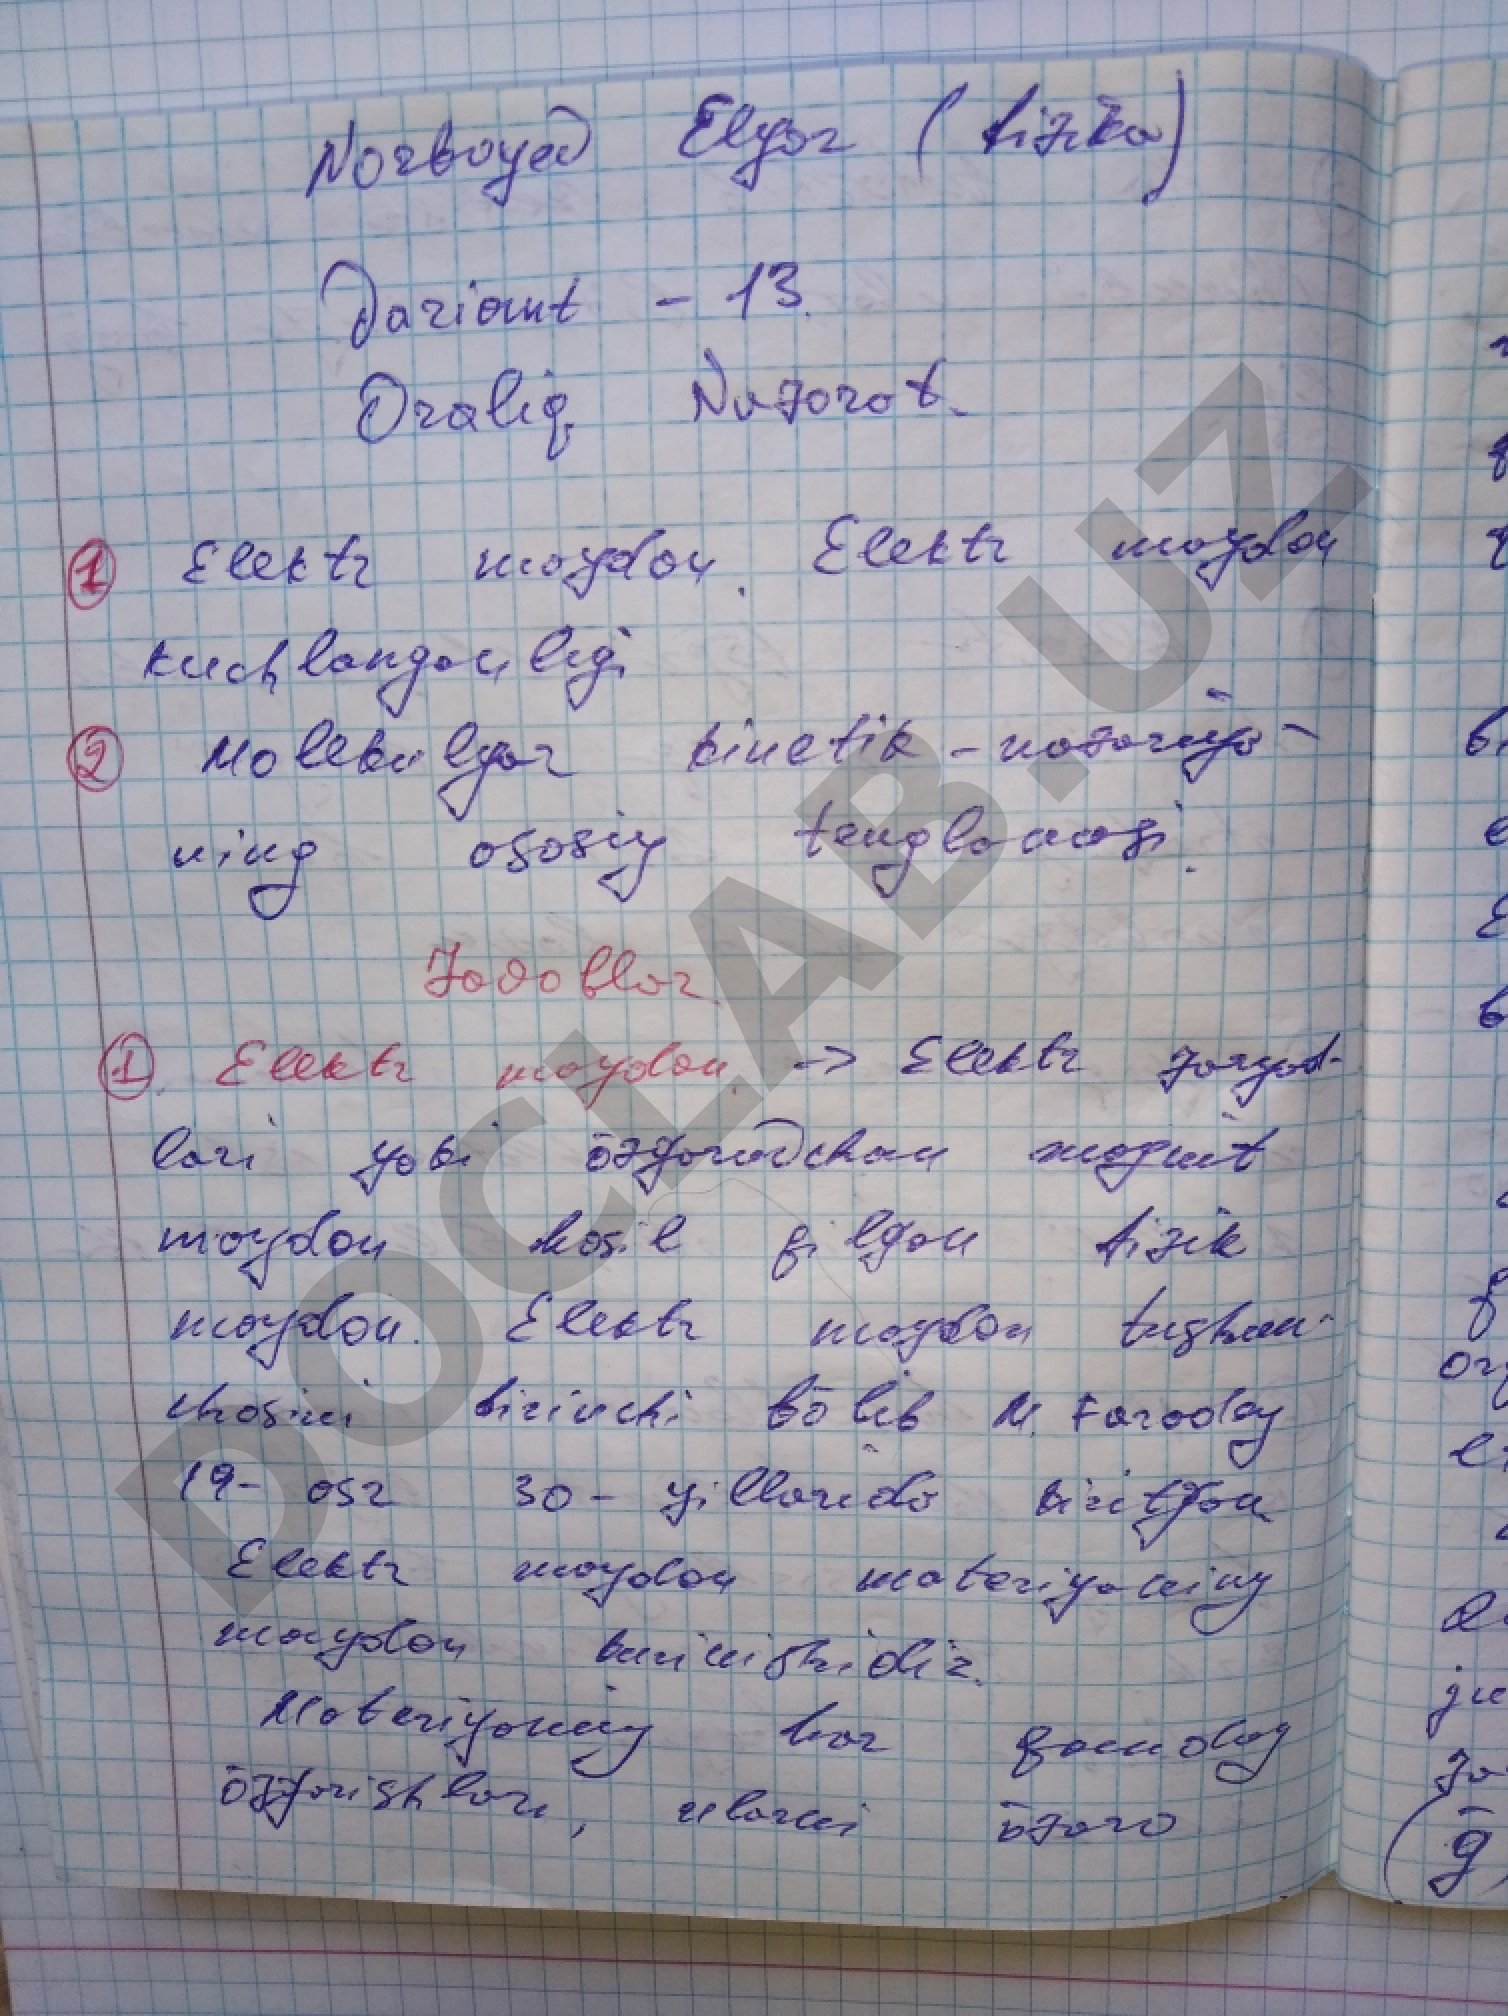 Norboyev Elyor (fizika)
Variant - 13.
Oraliq Nazorat.
① Elektr maydon. Elektr maydon
kuchlanganligi
② Molekulyar kinetik - nazariya -
ning asosiy tenglamasi.
Javoblar.
①. Elektr maydon. -> Elektr zaryad-
lari yoki õzgaruvchan magnit
maydon hosil qilgan fizik
maydon. Elektr maydon tushun-
chasini birinchi bõlib M. Faraday
19- asr 30- yillarida kiritgan
Elektr maydon materiyaning
maydon kurinishidir.
Materiyaning har qanday
õzgarishlari, ularni õzaro
DOCLAB.UZ